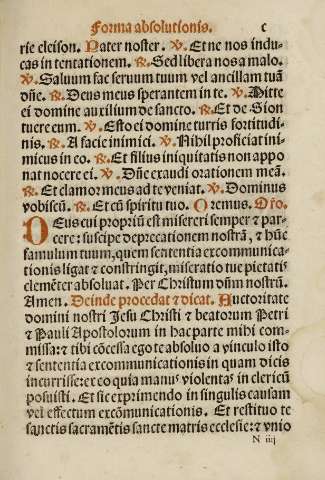 Forma absolutionis. c
rie eleison. Pater noster. ℣. Et ne nos indu-
cas in tentationem. ℟. Sed libera nos a malo.
℣. Saluum fac seruum tuum vel ancillam tuã
dñe. ℟. Deus meus sperantem in te. ℣. Mitte
ei domine auxilium de sancto. ℟. Et de Sion
tuere eum. ℣. Esto ei domine turris fortitudi-
nis. ℟. A facie inimici. ℣. Nihil proficiat ini-
micus in eo. ℟. Et filius iniquitatis non appo
nat nocere ei. ℣. Dñe exaudi orationem meã.
℟. Et clamor meus ad te veniat. ℣. Dominus
vobiscũ. ℟. Et cũ spiritu tuo. Oremus. Oro.
DEus cui propriũ est misereri semper & par-
cere: suscipe deprecationem nostrã, & hũc
famulum tuum, quem sententia excommunica-
tionis ligat & constringit, miseratio tue pietatis
clemẽter absoluat. Per Christum dñm nostrũ.
Amen. Deinde procedat & dicat. Auctoritate
domini nostri Jesu Christi & beatorum Petri
& Pauli Apostolorum in hac parte mihi com-
missa: & tibi cõcessa ego te absoluo a vinculo isto
& sententia excommunicationis in quam dicis
incurrisse: ex eo quia manus violentas in clericũ
posuisti. Et sic exprimendo in singulis causam
vel effectum excõmunicationis. Et restituo te
sanctis sacramẽtis sancte matris ecclesie: & vnio
N iiij